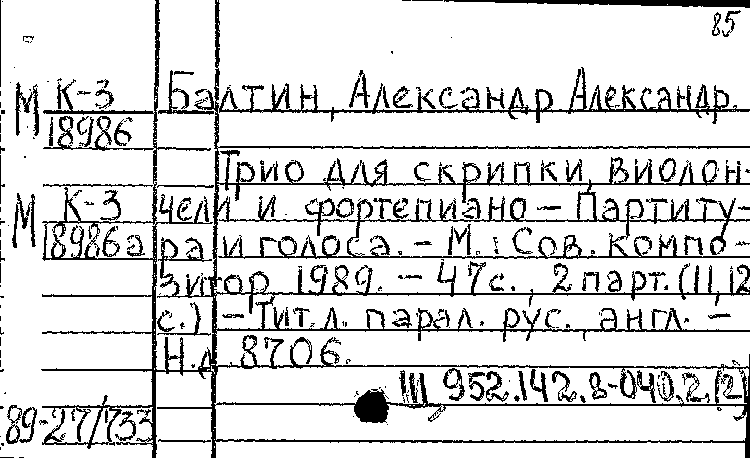 85
М К-3 Балтин, Александр Александр.
18986
Трио для скрипки, виолон-
М К-3 чели и фортепиано – Партиту-
18986а ра и голоса. – М.: Сов. компо-
зитор 1989. – 47 с., 2 парт. (11, 12
с.) – Тит. л. парал. рус., англ. –
Н.д. 8706.
III, 952.142.8-040.2, (2)
89-27/733